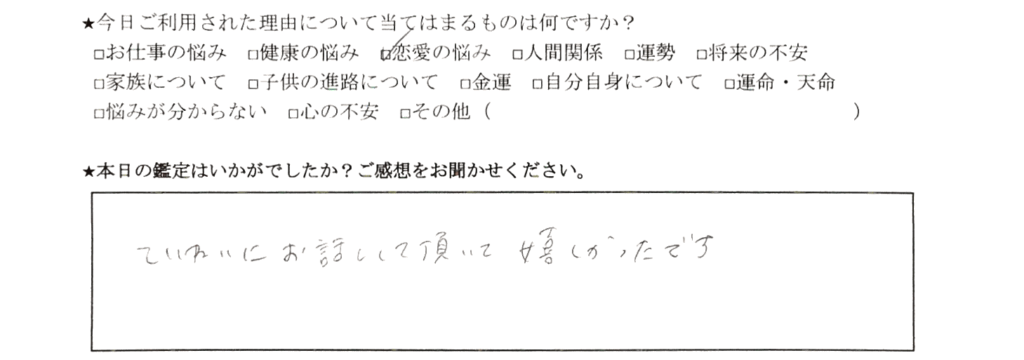 ★今日ご利用された理由について当てはまるものは何ですか？
□お仕事の悩み □健康の悩み ☑恋愛の悩み □人間関係 □運勢 □将来の不安
□家族について □子供の進路について □金運 □自分自身について □運命・天命
□悩みが分からない □心の不安 □その他（ ）
★本日の鑑定はいかがでしたか？ご感想をお聞かせください。
ていねいにお話しして頂いて嬉しかったです